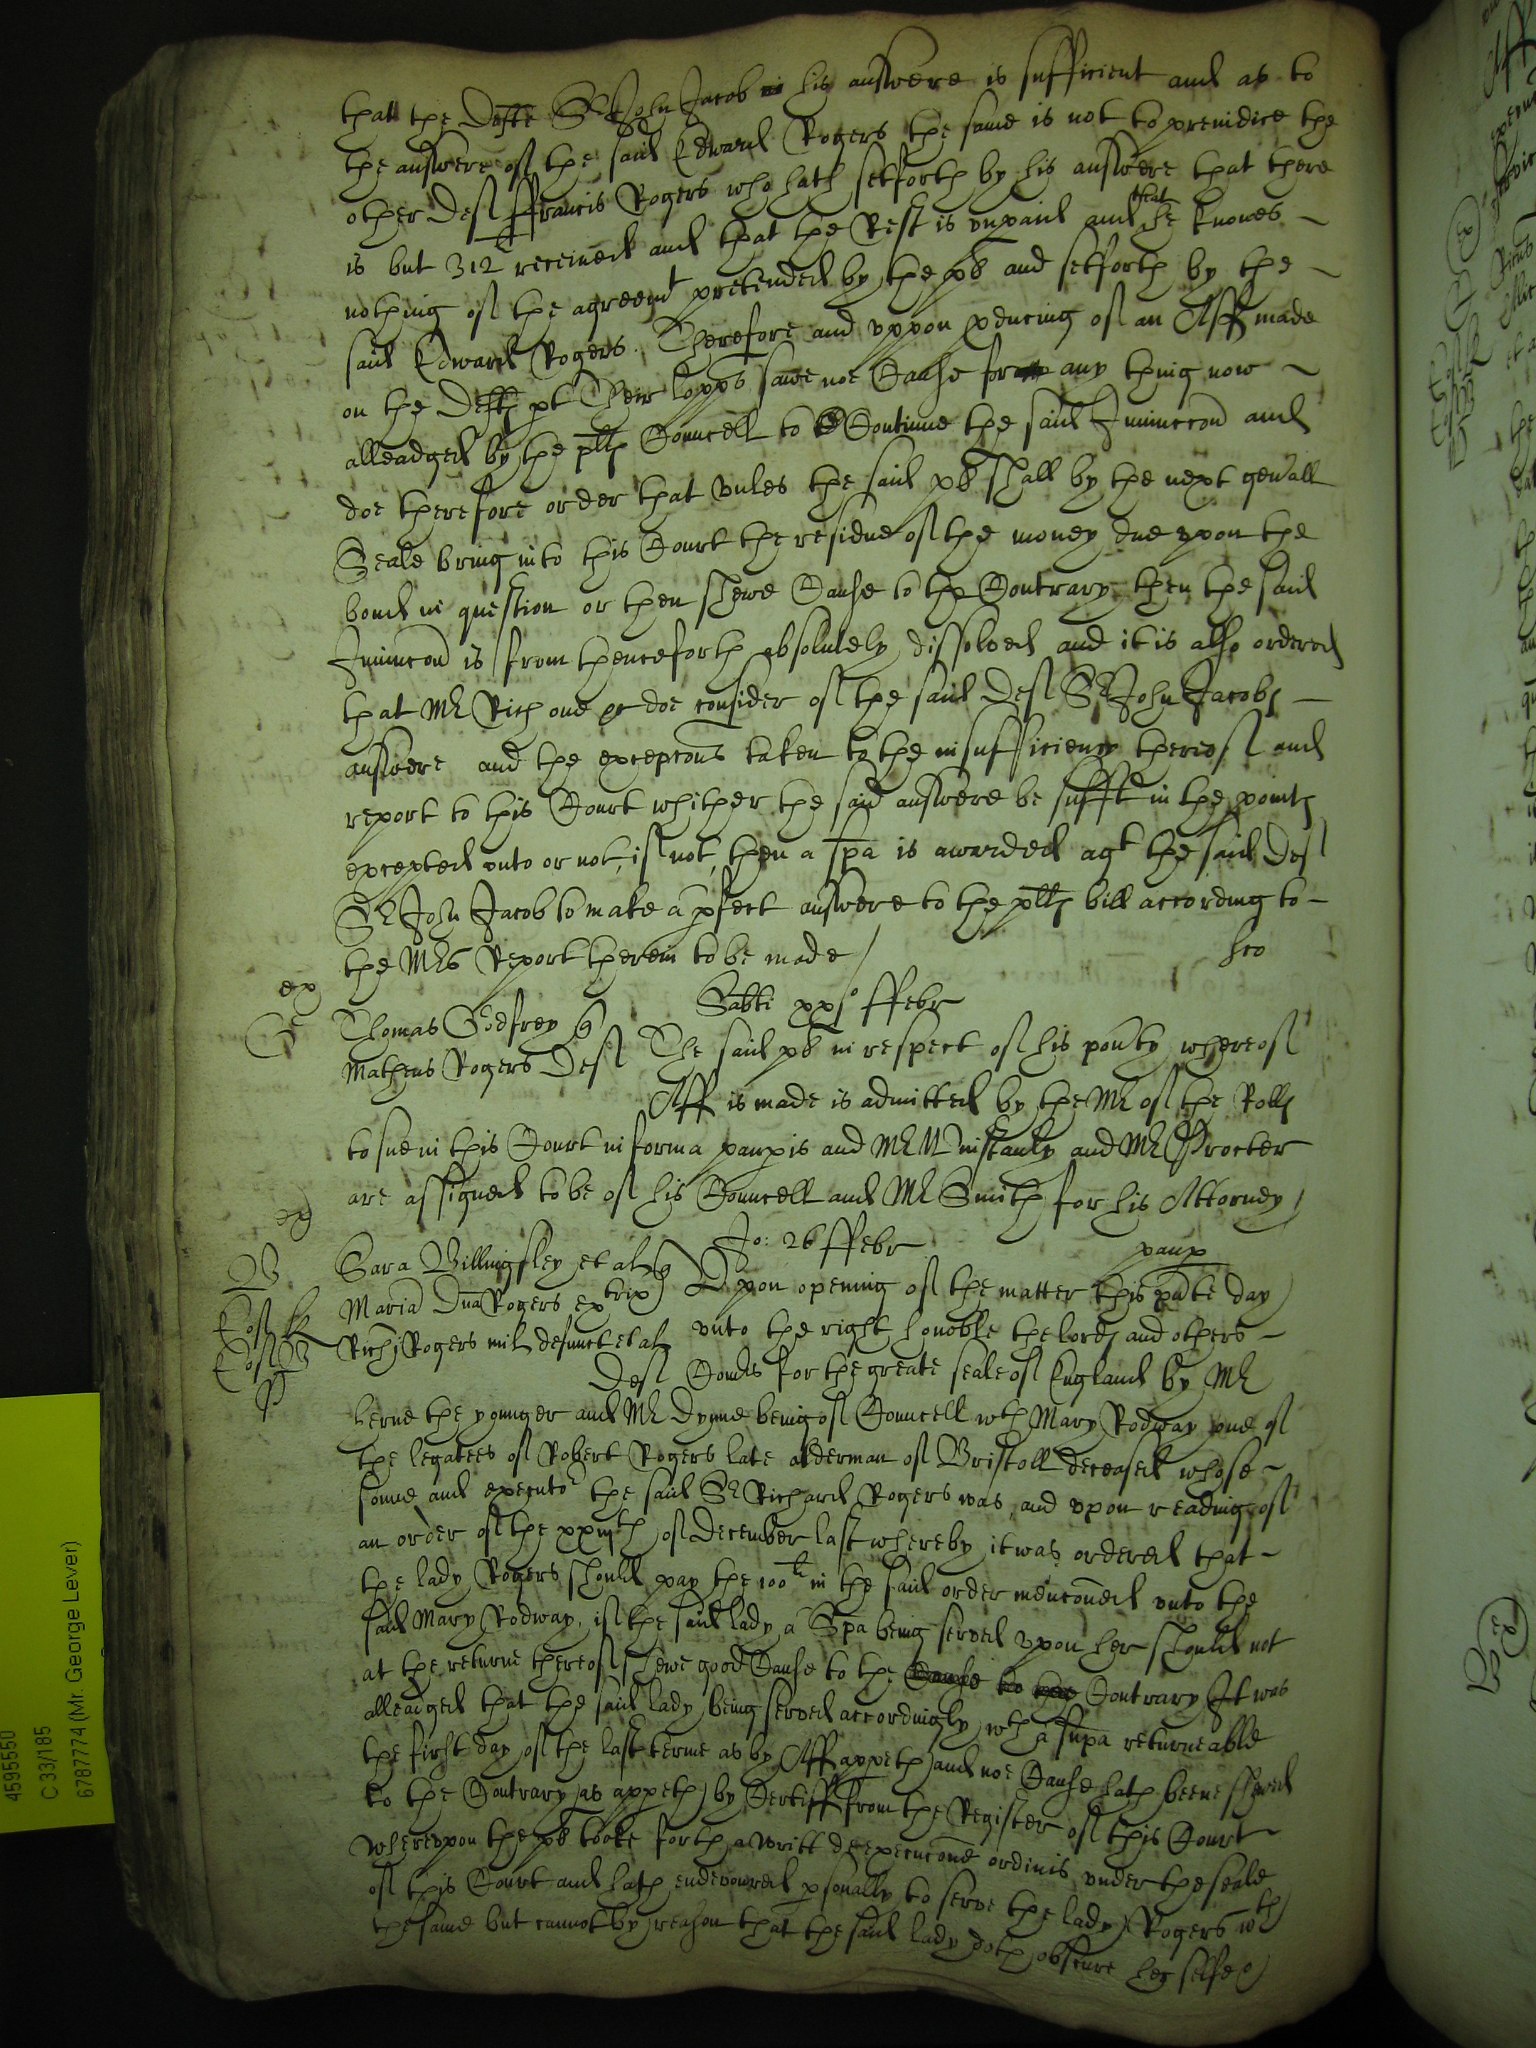 that the Defte Sr John Jacob his answere is sufficient and as to
the answere of the said Edward Rogers the same is not to preiudice the
other Def ffrancis Rogers who hath setforth by his answere that there
is but 312l receiued and that the Rest is vnpaid and that he knowes
nothing of the agreemt pretended by the pl and setforth by the
said Edward Rogers. Therefore and vppon pducing of an Aff made
on the Defts pt Their lopps sawe noe Cause for any thing now
alleadged by the plts Councell to Continue the said Iniunccon and
doe therefore order that vnles the said pl shall by the next genrall
Seale bring into this Court the residue of the money due vpon the
bond in question or then shewe Cause to the Contrary then the said
Iniunccon is from thenceforth absolutely dissolved and it is also ordered
that Mr Rich one &c doe consider of the said Def Sr John Jacobs
answere and the excepcons taken to the insufficiency thereof and
report to this Court whither the said answere be sufft in the points
excepted vnto or not, if not, then a spa is awarded agt the said Def
Sr John Jacob to make a pfect answere to the plts bill according to
the Mrs Report therein to be made
ex
Sabti xxjo ffebr
Thomas Godfrey
Matheus Rogers Def The said pl in respect of his pouty whereof
Aff is made is admitted by the Mr of the Rolls
to sue in this Court in forma paupis and Mr Winstanly and Mr Procter
are assigned to be of his Councell and Mr Smith for his Attorney
Jo: 26 ffebr
Sara Billingsley et al Vpon opening of the matter this pnte day
Maria Dna Rogers extrix vnto the right honoble the lords and others
Richi Rogers mil defunct et al
Def Comrs for the greate seale of England by Mr
herne the younger and Mr Dynne being of Councell wth Mary Rodway one of
the legatees of Robert Rogers late alderman of Bristoll deceased whose
sonne and executor the said Sr Richard Rogers was, and vpon reading of
an order of the xxiijth of December last whereby it was ordered that
the lady Rogers should pay the 100l in the said order menconed vnto the
said Mary Rodway, if the said lady a Spa being served vpon her should not
at the returne thereof shewe good Cause to the Contrary It was
alleadged that the said lady being served accordingly wth a supa returneable
the first day of the last terme as by Aff appeth and noe Cause hath beene shewed
to the Contrary as appeth by Certiff from the Register of this Court
wherevpon the pl tooke forth a writt de execucone ordinis vnder the seale
of this Court and hath endevoured psonally to serve the lady Rogers wth
the same but cannot by reason that the said lady doth obscure her selfe
4595550
C 33/185
6787774 (Mr. George Lever)